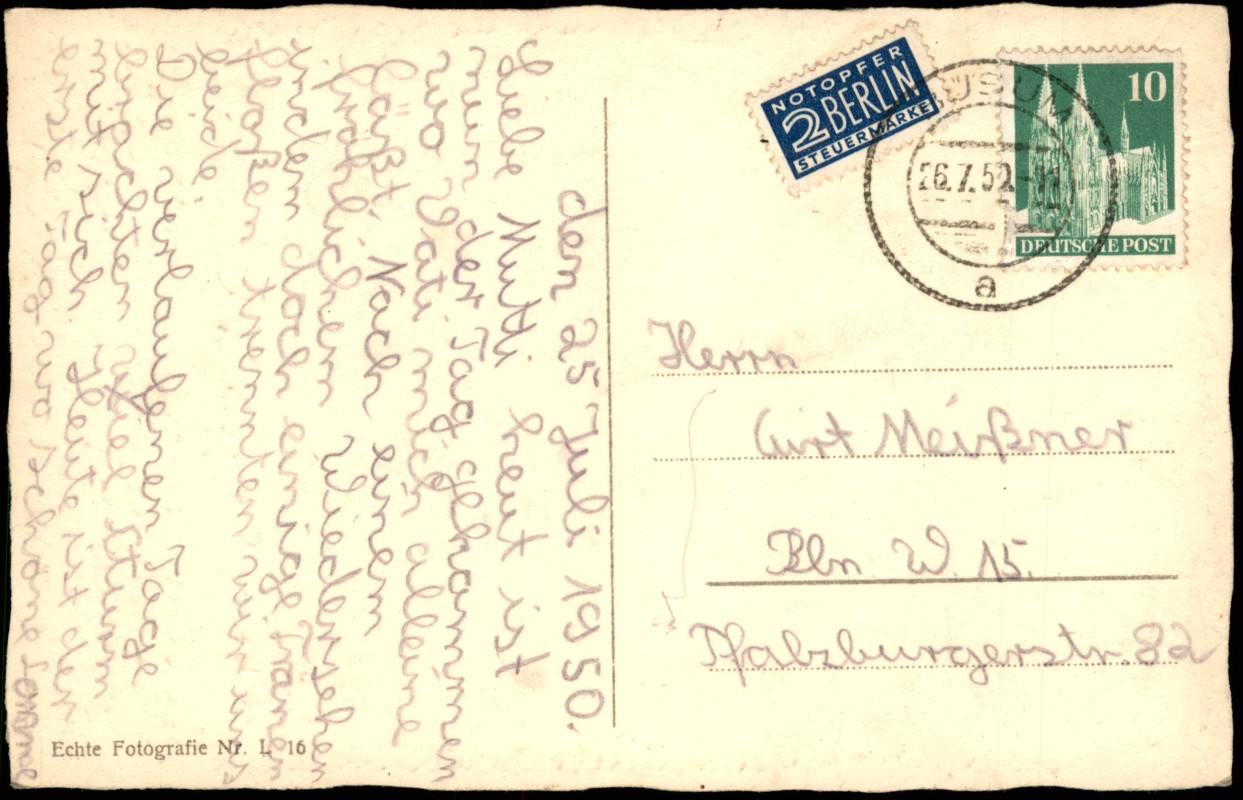 den 25. Juli 1950.
Liebe Mutti heut ist
nun der Tag gekommen
wo Vati mich alleine
läßt. Nach einem
fröhlichen Wiedersehen
indem doch einige Tränen
floßen trennten wir uns
leicht.
Die verlaufenen Tage
brachten viel Sturm
mit sich. Heute ist der
erste Tag wo schöne Sonne
Echte Fotografie Nr. L 16
NOTOPFER
2 BERLIN
STEUERMARKE
BÜSUM
26.7.50.-
a
10
DEUTSCHE POST
Herrn
Curt Meißner
Bln. W. 15.
Pfalzburgerstr. 82